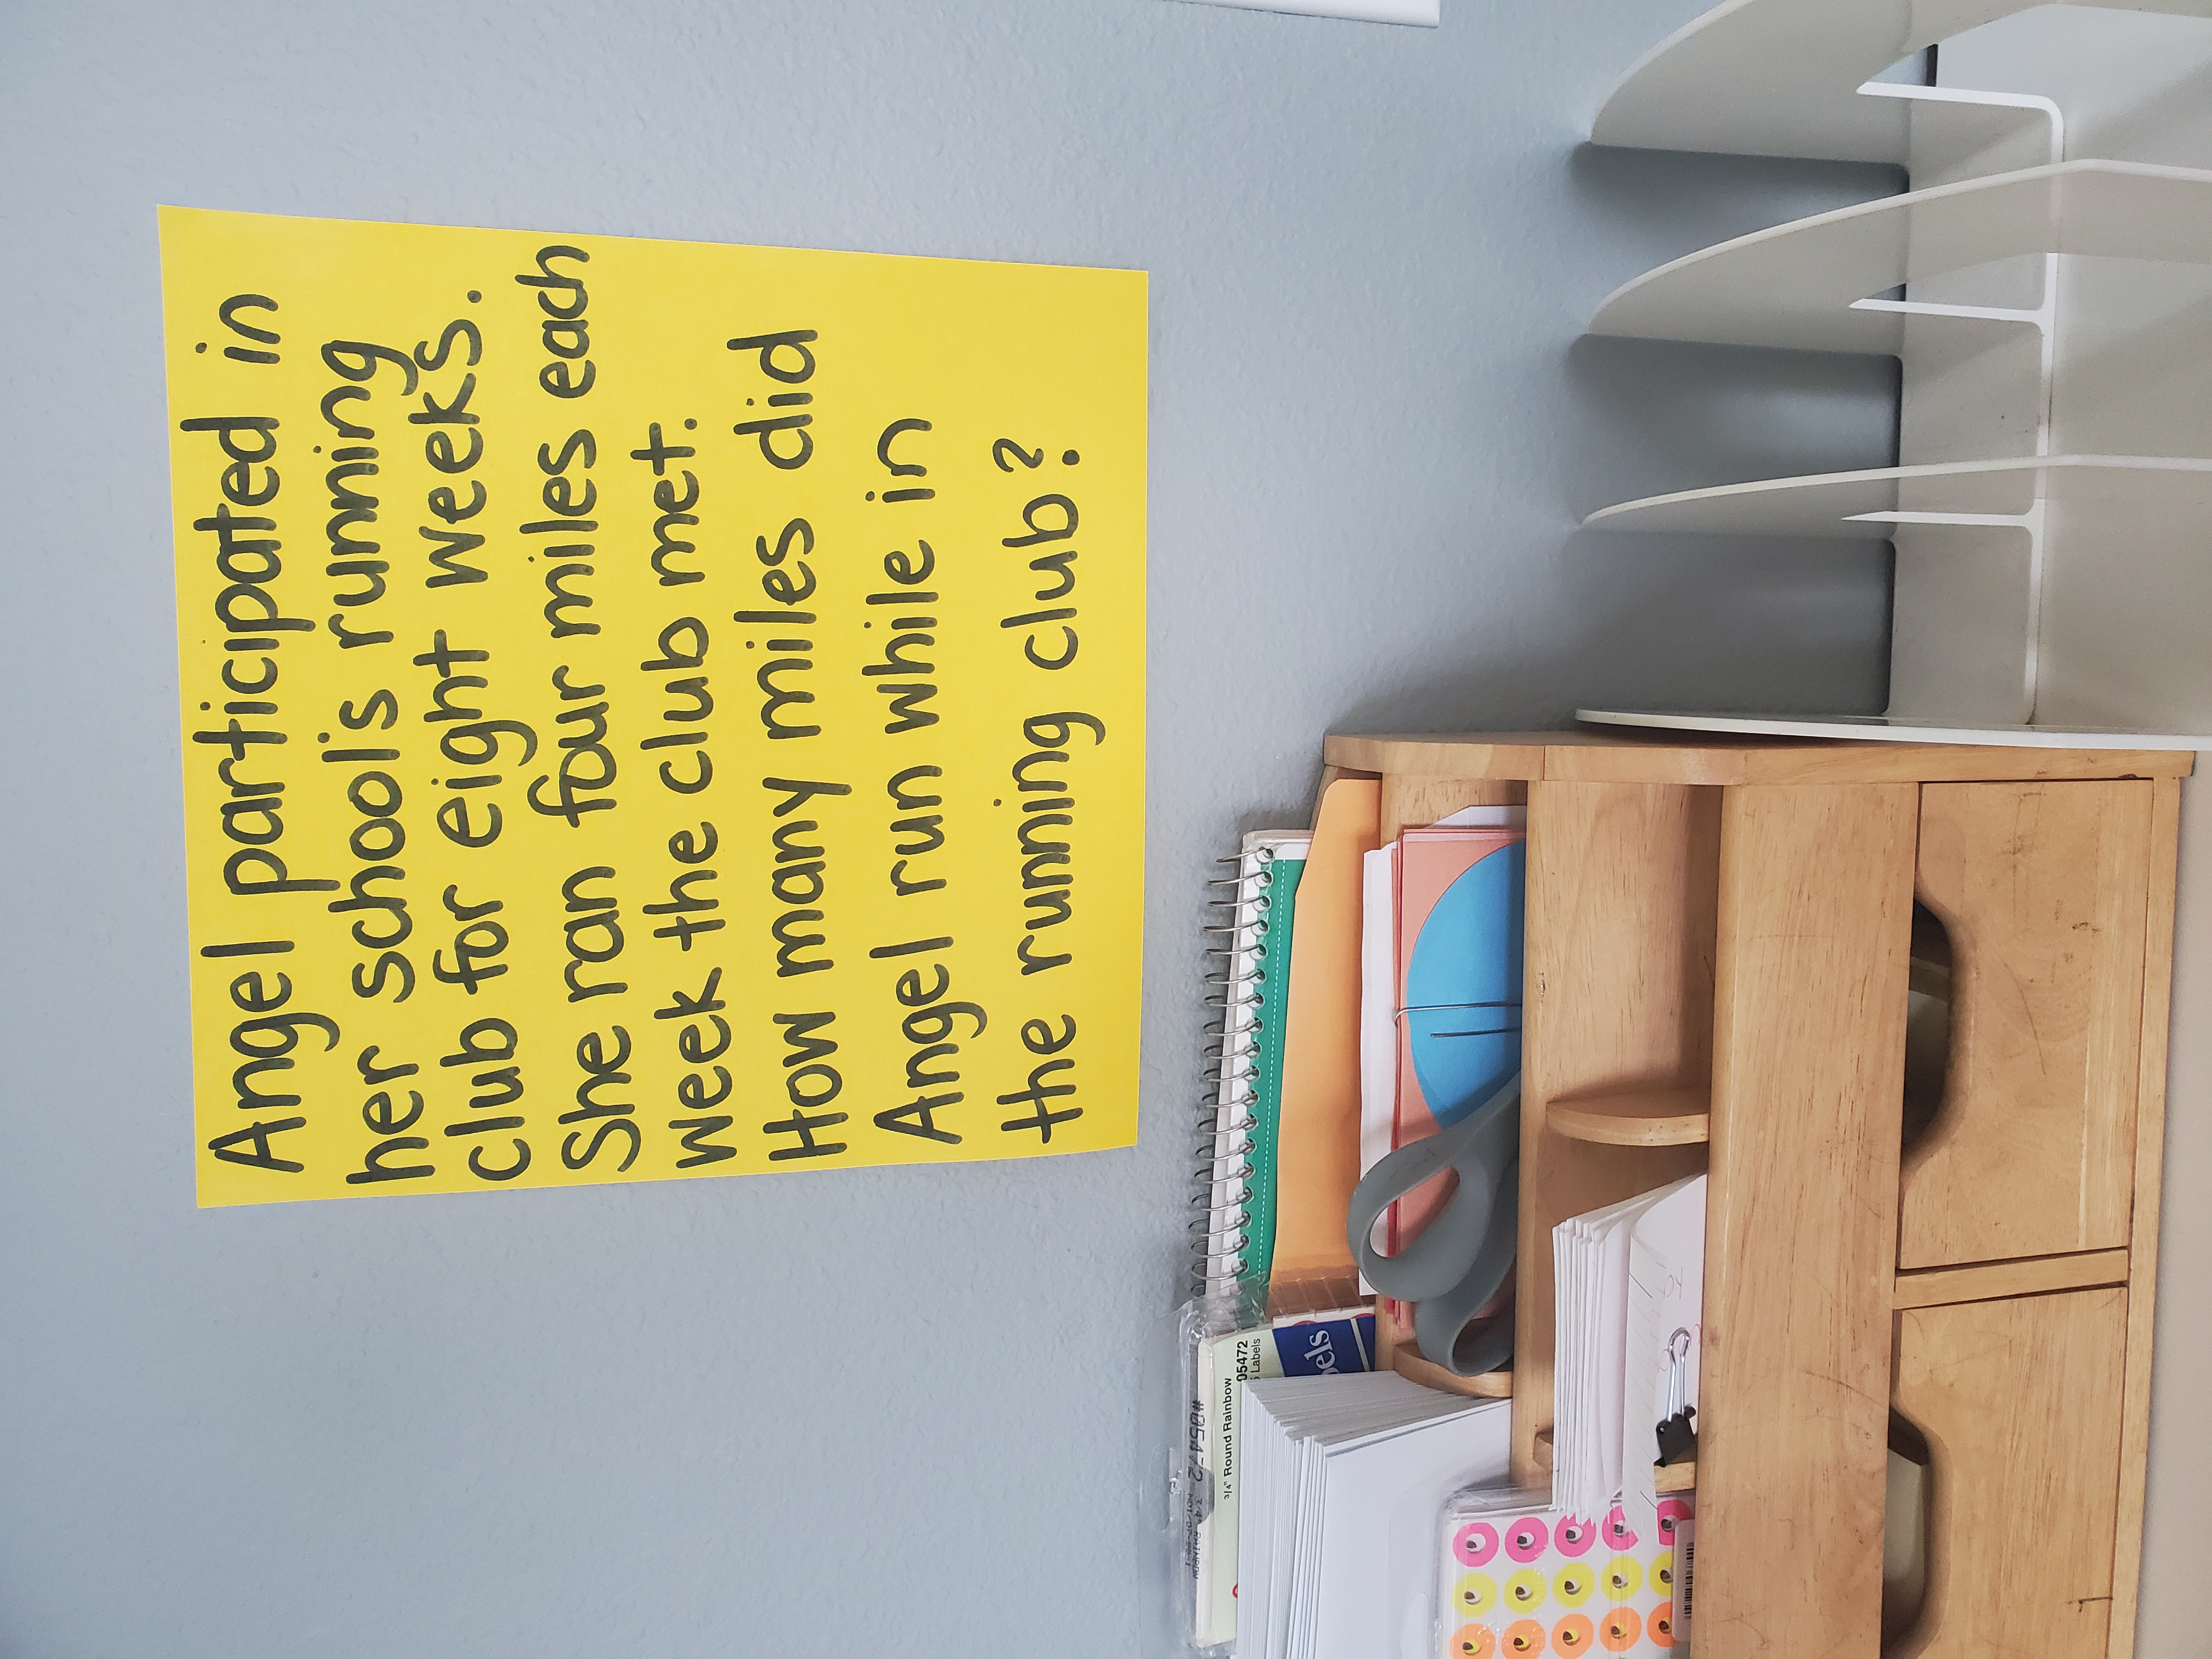 Angel participated in
her school's running
club for eight weeks.
She ran four miles each
week the club met.
How many miles did
Angel run while in
the running club?
05472
Labels
3/4" Round Rainbow
#05472